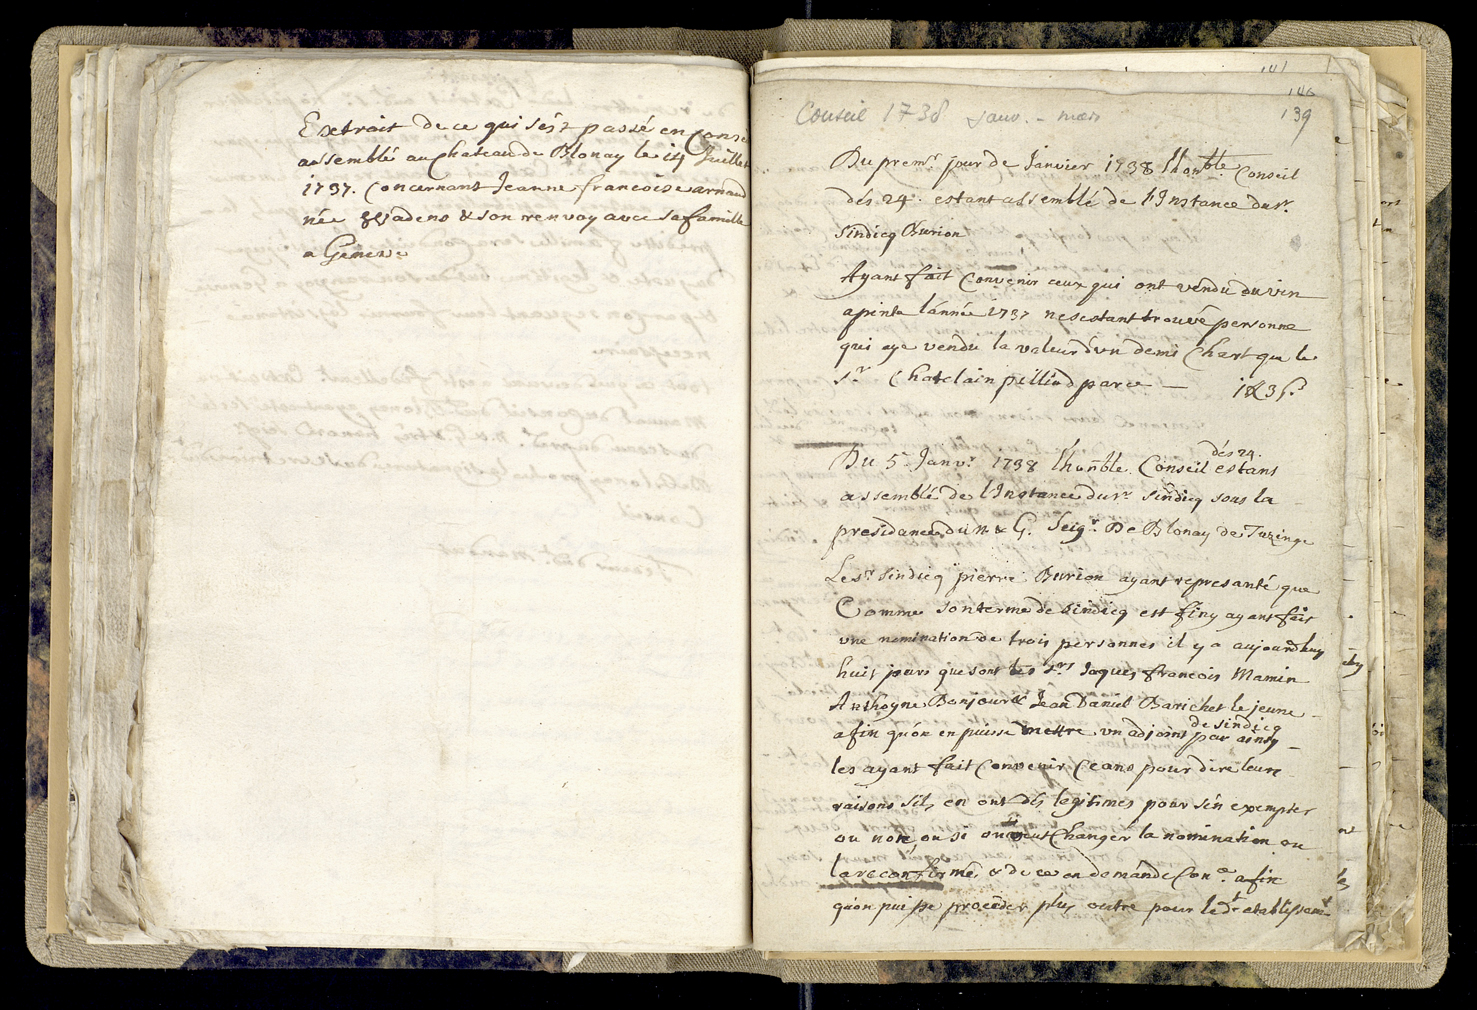 Extrait de ce qui s'est passé en Conse
assemblé au chateau de Blonay le 14 Juillet
1737. Concernant Jeanne francoise arnaud
née & son renvoy avec sa famille
a Geneve
Conseil 1738 Janv. - mars
141
140
139
Du premr. jour de Janvier 1738 lhonble. Conseil
dés 24. estant assemblé de l'Instance du sr.
Sindicq Burion
Ayant fait Convenir ceux qui ont vendu du vin
a pinte l'année 1737 ne sestant trouvé personne
qui aye vendu la valeur d'vn demi Chart que le
Sr. Chatelain pilliod parce —
dés 24.
Du 5e. Janvr. 1738 lhonble. Conseil estans
assemblé de l'Instance du sr. sindicq sous la
presidance du N. & G. Seigr. De Blonay de Tuzinge
Le sr. Sindicq pierre Burion ayant represanté que
Comme son terme de Sindicq est finy ayant fait
vne nomination de trois personnes il y a aujourdhuy
huit jours que sont les Srs. Jaques francois Mamin
Anthoyne Bonjour & Jean Daniel Barichet le jeune
de sindicq
afin qu'on en puisse mettre vn adjoint par ainsy
les ayant fait Convenir Ceans pour dire leurs
raisons sils en ont dés legitimes pour sén exempter
ou non, ou si on veut Changer la nomination ou
la reconfirmé, & de ce on demande Cone. afin
quon puisse proceder plus outre pour led. etablissemt.